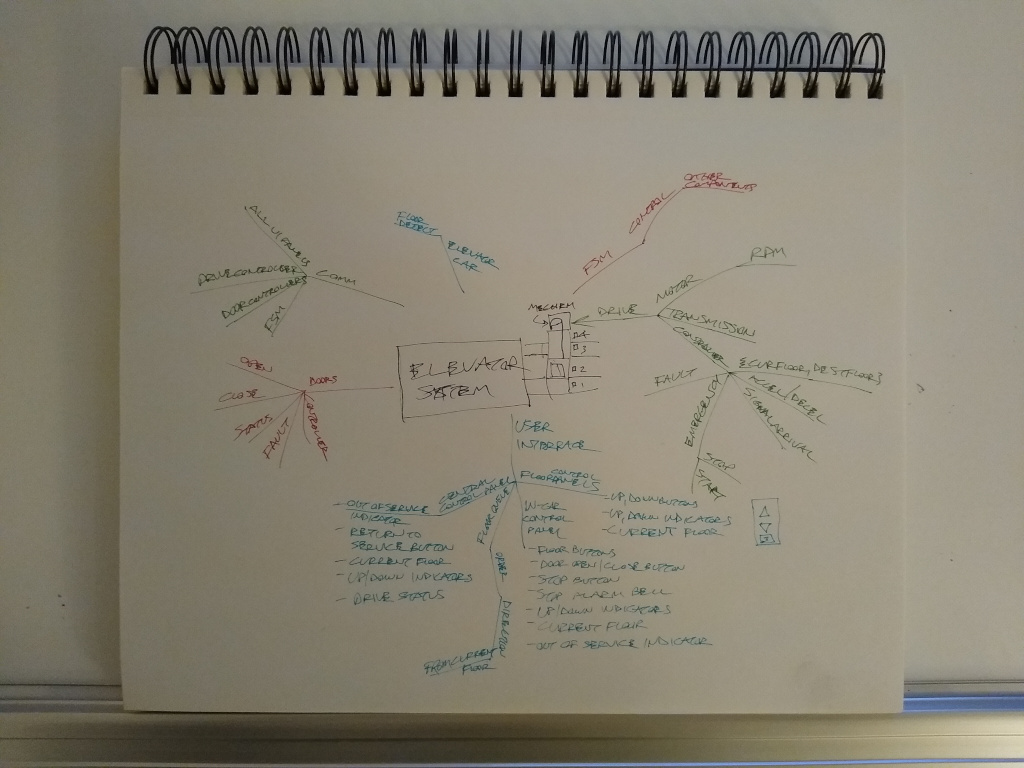 OTHER
COMPONENTS
CONTROL
FSM
ALL UI PANELS
DRIVE CONTROLLER
DOOR CONTROLLERS
FSM
COMM
FLOOR
DETECT
ELEVATOR
CAR
RAM
MOTOR
DRIVE
TRANSMISSION
CONTROLLER
FAULT
(CURFLOOR, DESTFLOORS)
ACCEL/DECEL
SIGNAL ARRIVAL
EMERGENCY
STOP
START
4
3
2
1
ELEVATOR
SYSTEM
OPEN
CLOSE
STATUS
FAULT
DOORS
CONTROLLER
USER
INTERFACE
CENTRAL
CONTROL PANEL
- OUT OF SERVICE
INDICATOR
- RETURN TO
SERVICE BUTTON
- CURRENT FLOOR
- UP/DOWN INDICATORS
- DRIVE STATUS
FLOOR QUEUE
ORDER
DIRECTION
FROM CURRENT
FLOOR
CONTROL
FLOOR PANELS
- UP, DOWN BUTTONS
- UP, DOWN INDICATORS
- CURRENT FLOOR
IN-CAR
CONTROL
PANEL
- FLOOR BUTTONS
- DOOR OPEN/CLOSE BUTTON
- STOP BUTTON
- STOP ALARM BELL
- UP/DOWN INDICATORS
- CURRENT FLOOR
- OUT OF SERVICE INDICATOR